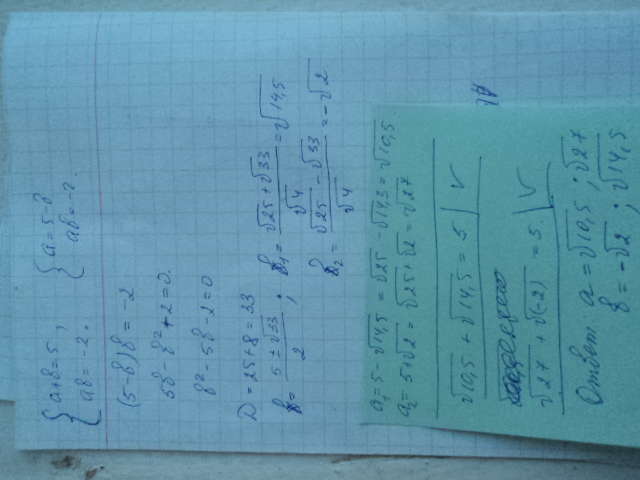 {a+b=5, {a=5-b
{ab=-2. ab=-2.
(5-b)b=-2
5b-b²+2=0.
b²-5b-2=0
D=25+8=33
b=(5±√33)/2; b₁=(√25+√33)/√4=√14,5
b₂=(√25-√33)/√4=-√2
a₁=5-√14,5=√25-√14,5=√10,5.
a₂=5+√2=√25+√2=√27
√10,5+√14,5=5 | V
√27+√(-2)=5. | V
Ответ: a=√10,5; √27
b=-√2; √14,5